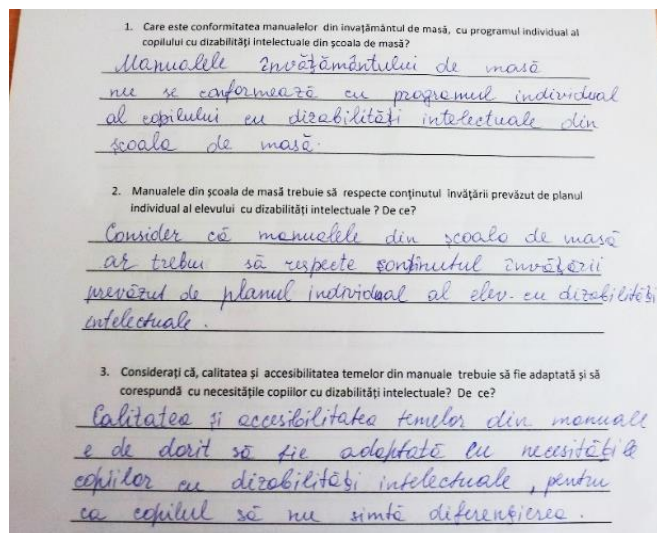 1. Care este conformitatea manualelor din învațământul de masă, cu programul individual al
copilului cu dizabilități intelectuale din școala de masă?
Manualele învățământului de masă
nu se conformează cu programul individual
al copilului cu dizabilități intelectuale din
școala de masă.
2. Manualele din școala de masă trebuie să respecte conținutul învățării prevăzut de planul
individual al elevului cu dizabilități intelectuale ? De ce?
Consider că manualele din școala de masă
ar trebui să respecte conținutul învățării
prevăzut de planul individual al elev. cu dizabilități
intelectuale.
3. Considerați că, calitatea și accesibilitatea temelor din manuale trebuie să fie adaptată și să
corespundă cu necesitățile copiilor cu dizabilități intelectuale? De ce?
Calitatea și accesibilitatea temelor din manuale
e de dorit să fie adaptată cu necesitățile
copiilor cu dizabilități intelectuale, pentru
ca copilul să nu simtă diferențierea.